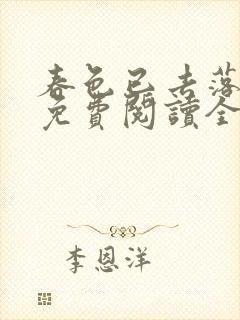 春色已去落
免費閱讀全
李恩洋